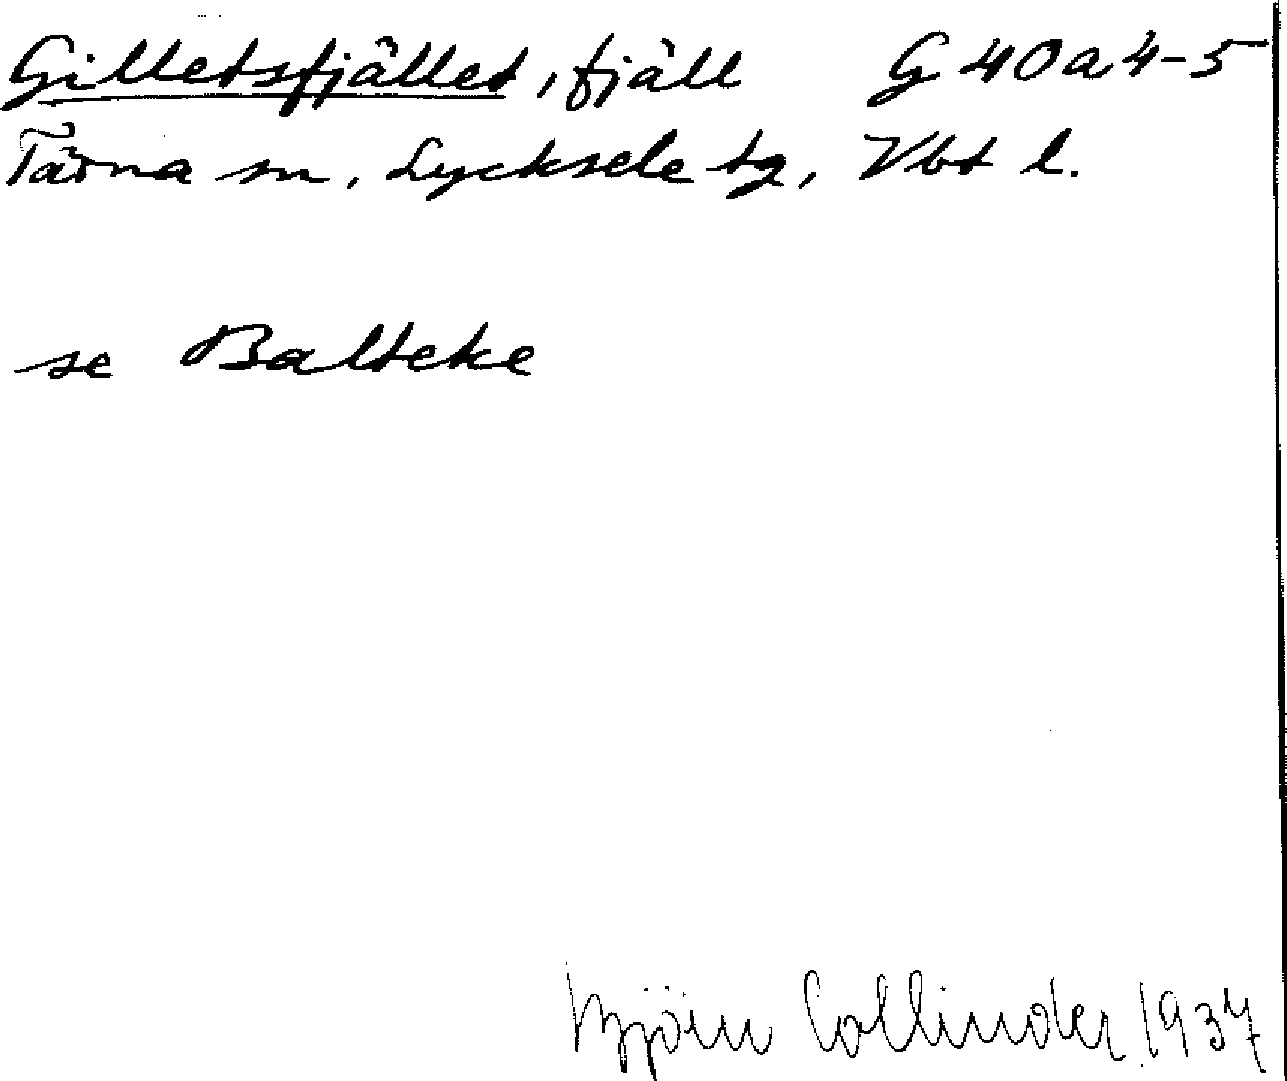 Gilletsfjället, fjäll G 40 a 4-5
Tärna sn, Lycksele tg, Vbt l.
se Balteke
Björn Collinder 1937